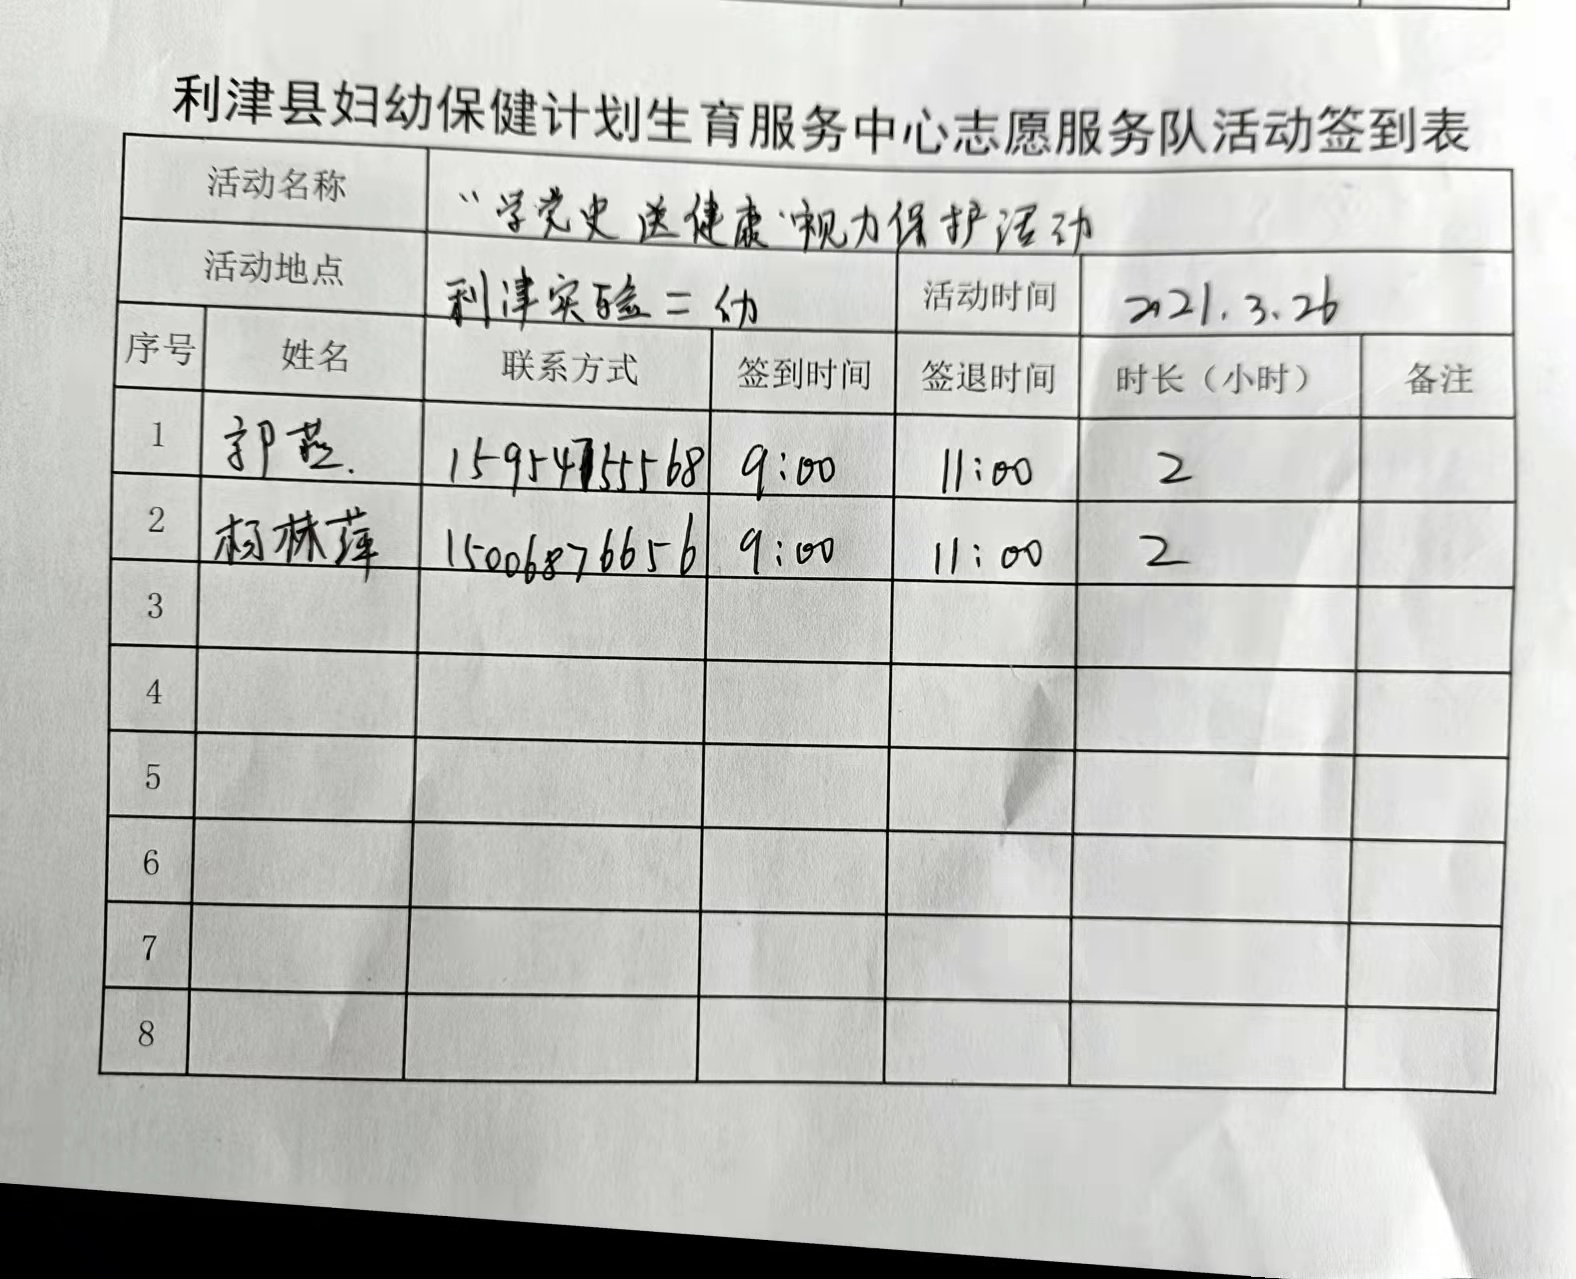 利津县妇幼保健计划生育服务中心志愿服务队活动签到表
活动名称 “学党史 送健康”视力保护活动
活动地点 利津实验二幼 活动时间 2021.3.26
序号 姓名 联系方式 签到时间 签退时间 时长（小时） 备注
1 郭燕. 15954755568 9:00 11:00 2
2 杨林萍 15006876656 9:00 11:00 2
3
4
5
6
7
8